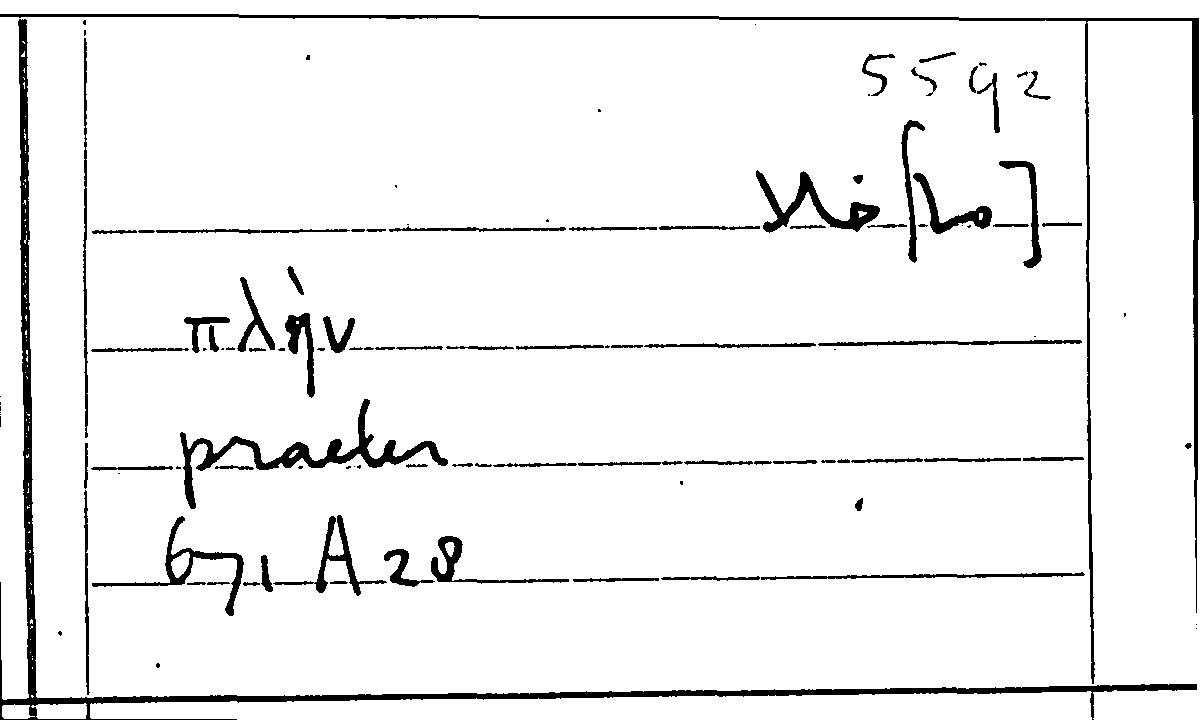 5592
πλὴν
praeter
671 A 28